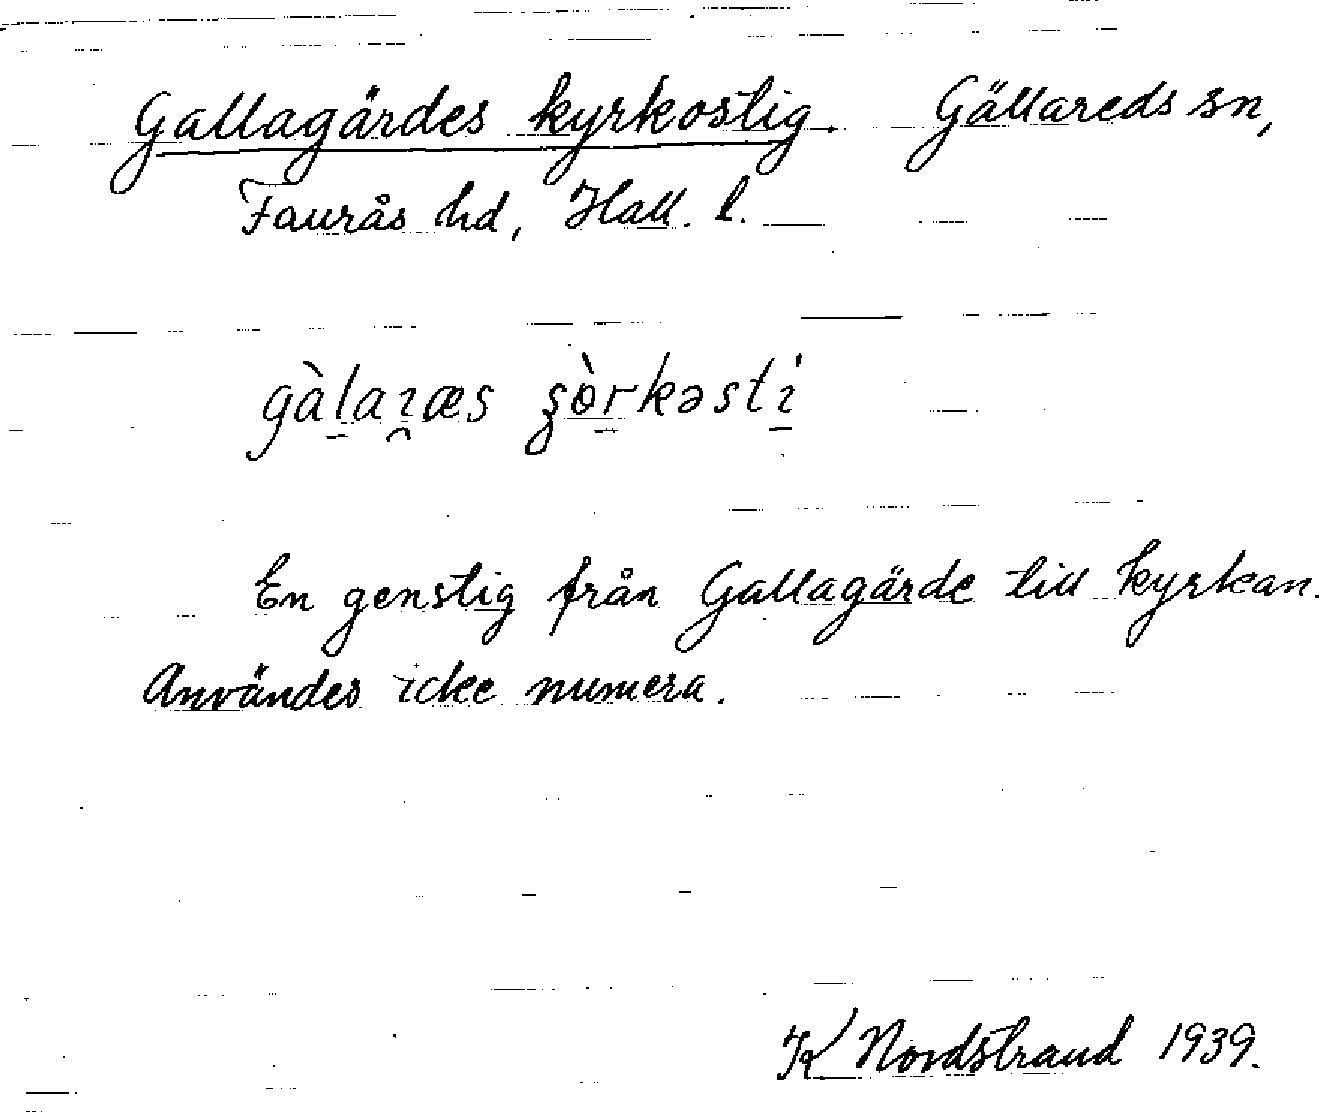 Gallagärdes kyrkostig. Gällareds sn,
Faurås hd, Hall. l.
gàla̱ɿ̯æs ʂò̱rkəstɿ̱
En genstig från Gallagärde till kyrkan.
Användes icke numera.
K Nordstrand 1939.